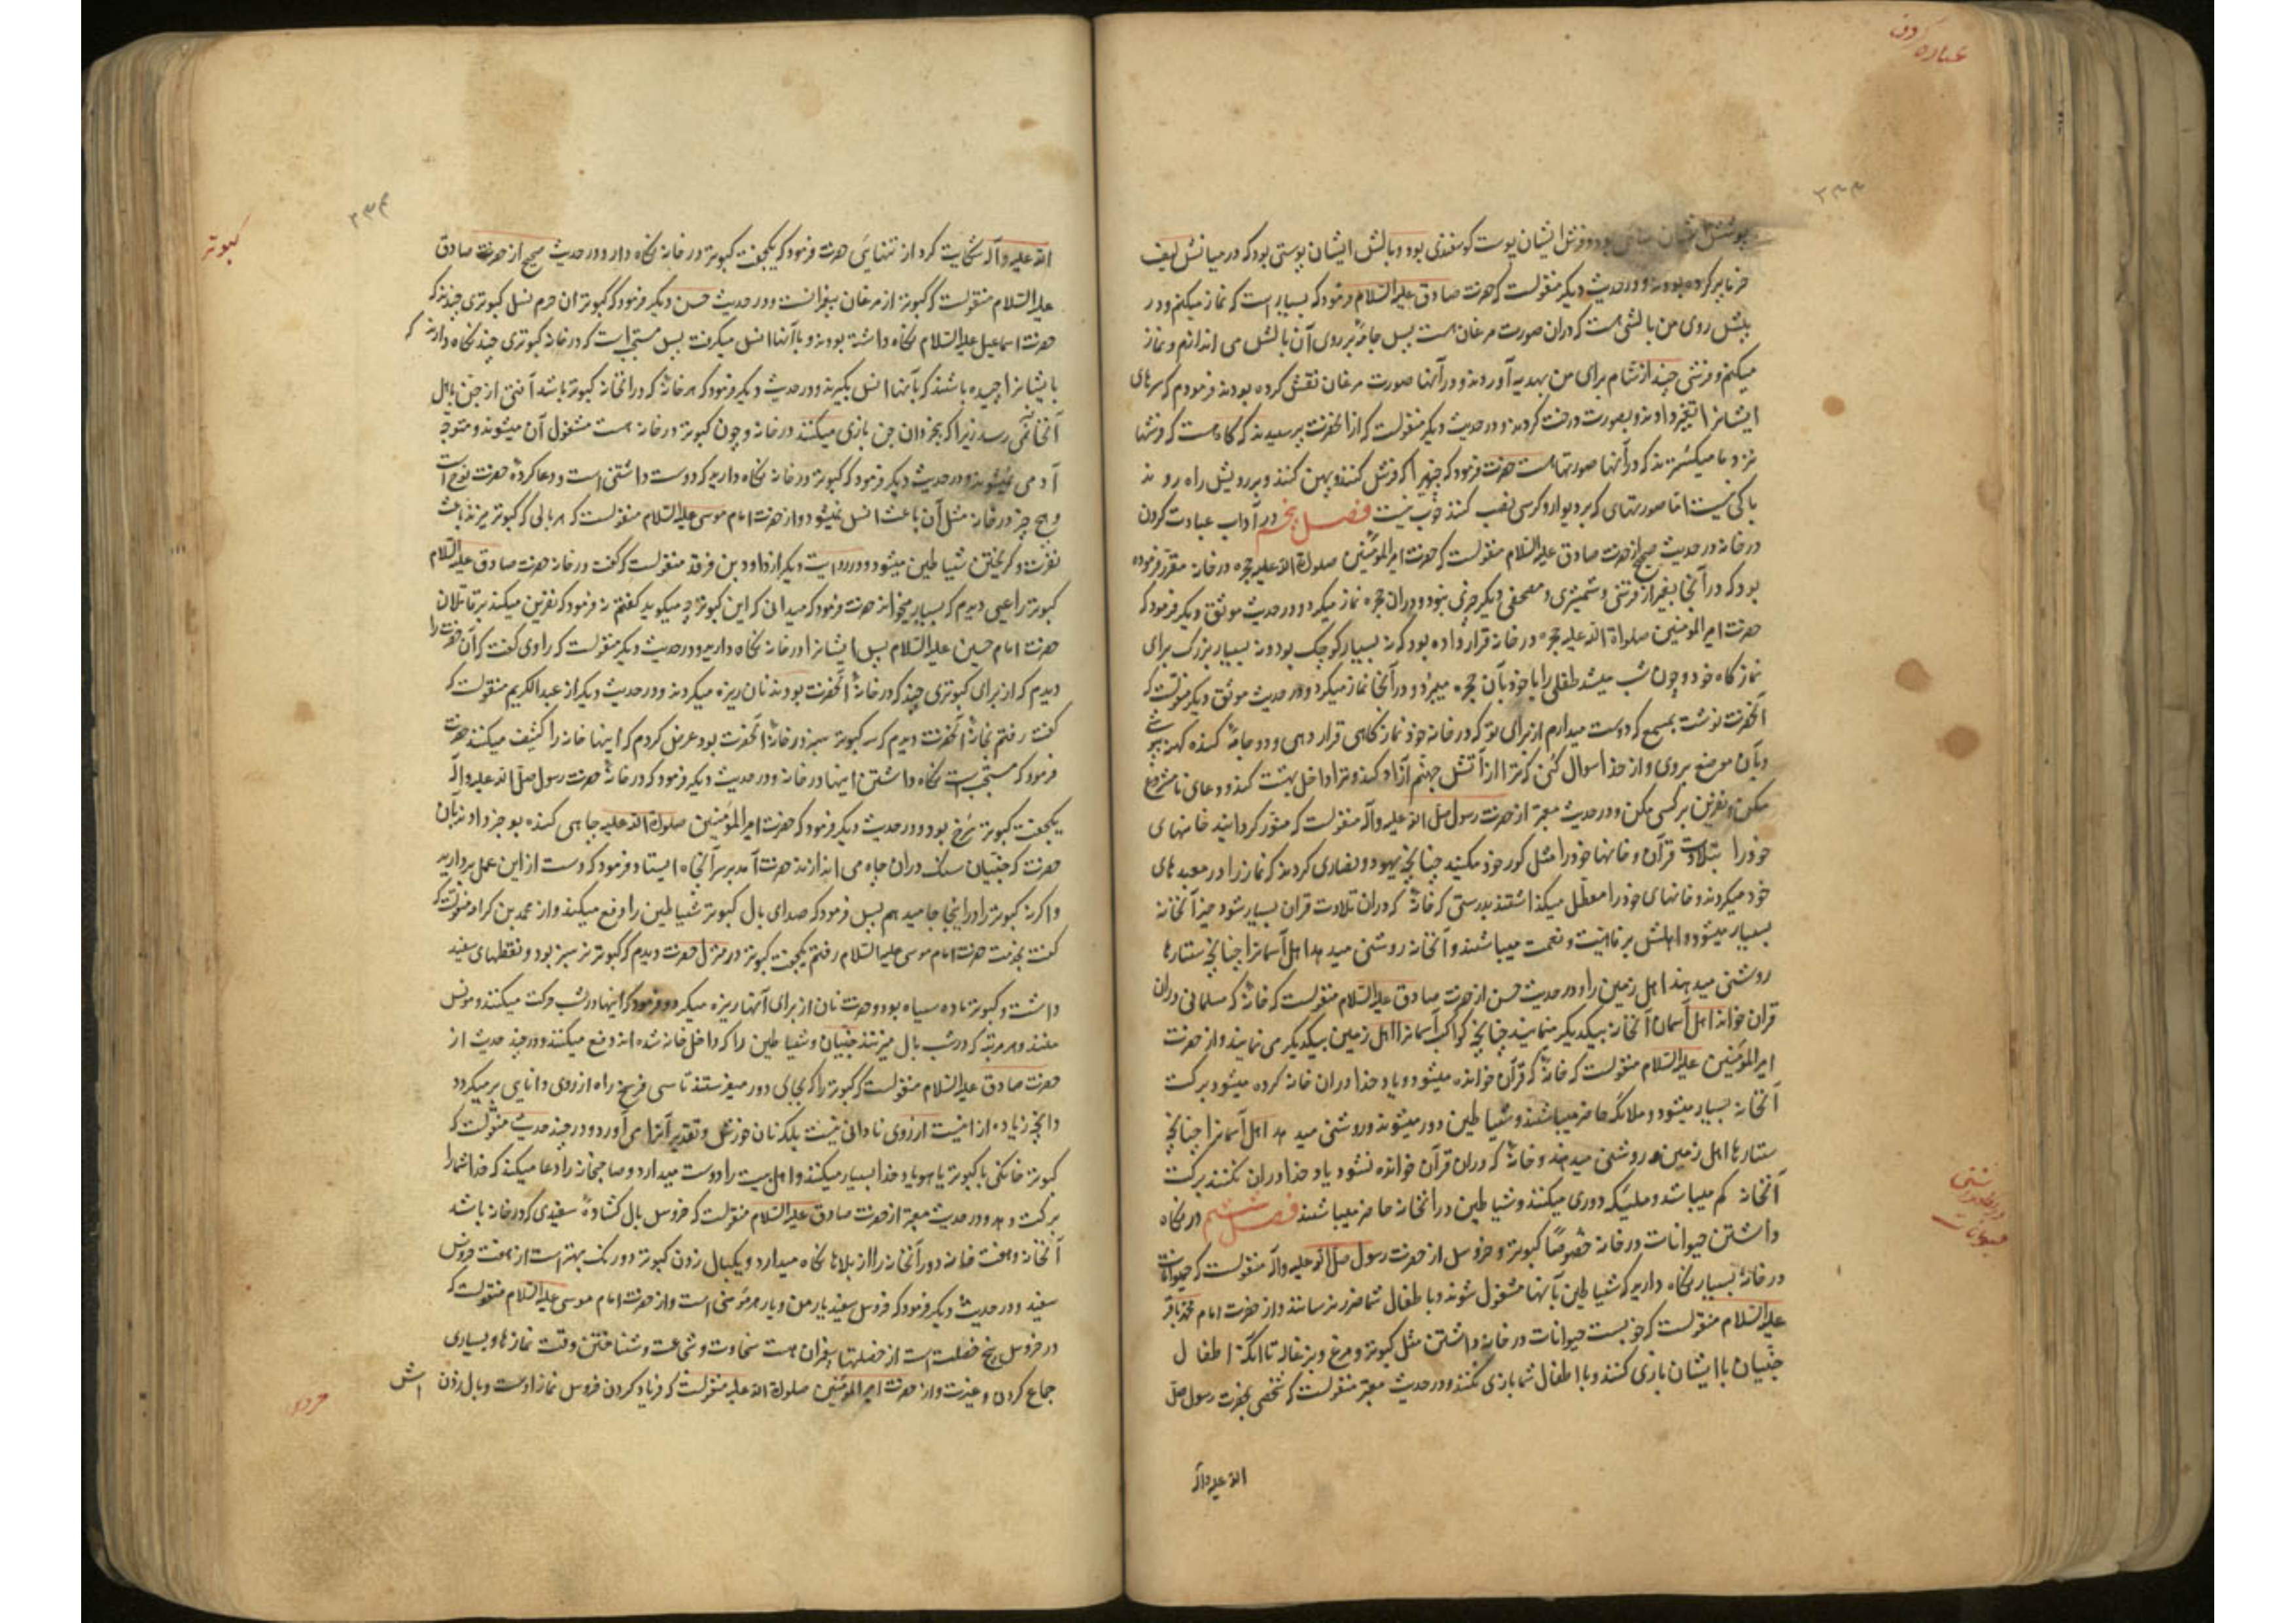 عبادة کردن
۲۳۳
پوشش ایشان بود و فرش ایشان پوست کوسفندی بود و بالش ایشان پوستی بود که در میانش لیف
خرما پر کرده بودند و در حدیث دیگر منقولست که حضرت صادق علیه السلام فرمود که بسیار است که نماز میکنم و در
پیش روی من بالشی هست که دران صورت مرغان هست پس جامهٔ بر روی آن بالش می اندازم و نماز
میکنم و فرشی چند از شام برای من بهدیه آوردند و در آنها صورت مرغان نقش کرده بودند فرمودم که سرهای
ایشانرا تغییر دادند و بصورت درخت کردند و در حدیث دیگر منقولست که از انحضرت پرسیدند که کاه هست که فرشها
نزد ما میکسترند که در آنها صورتها هست حضرت فرمود که چیزیرا که فرش کنند و پهن کنند و بر رویش راه روند
باکی نیست اما صورتهای که بر دیوار و کرسی نصب کنند خوب نیست فصل پنجم در آداب عبادت کردن
در خانه در حدیث صحیح از حضرت صادق علیه السلام منقولست که حضرت امیرالمؤمنین صلوة الله علیه حجره در خانه مقرر فرموده
بود که در آنجا بغیر از فرشی و شمشیری و مصحفی دیگر چیزی نبود و دران حجره نماز میکرد و در حدیث موثق دیگر فرمود که
حضرت امیرالمومنین صلوات الله علیه حجره در خانه قرار داده بود که نه بسیار کوچک بود و نه بسیار بزرک برای
نماز کاه خود و چون شب میشد طفلی را با خود بآن حجره میبرد و در آنجا نماز میکرد و در حدیث موثق دیکر منقولست که
انحضرت نوشت بمسمع که دوست میدارم از برای تو که در خانه خود نماز کاهی قرار دهی و دو جامهٔ کنده کهنه بپوشی
و بآن موضع بروی و از خدا سوال کنی که ترا از آتش جهنم آزاد کند و ترا داخل بهشت کند و دعای نامشروع
مکن و نفرین بر کسی مکن و در حدیث معتبر از حضرت رسول صلی الله علیه وآله منقولست که منور کردانید خانهای
خود را بتلاوت قرآن و خانها خود را مثل کور خود مکنید چنانچه یهود و نصاری کردند که نماز را در معبدهای
خود میکردند و خانهای خود را معطل میکذاشتند بدرستی که خانهٔ که دران تلاوت قران بسیار شود خیر آنخانه
بسیار میشود و اهلش بر فاهیت و نعمت میباشند و آنخانه روشنی میدهد اهل آسمانرا چنانچه ستارها
روشنی میدهند اهل زمین را و در حدیث حسن از حضرت صادق علیه السلام منقولست که خانهٔ که مسلمانی دران
قران خواند اهل آسمان آنخانه بیکدیکر مینمایند چنانچه کواکب آسمانرا اهل زمین بیکدیکر می نمایند و از حضرت
امیرالمومنین علیه السلام منقولست که خانهٔ که قرآن خوانده میشود و یاد خدا دران خانه کرده میشود برکت
آنخانه بسیار میشود و ملائکه حاضر میباشند و شیاطین دور میشوند و روشنی میدهد اهل آسمانرا چنانچه
ستارها اهل زمین را روشنی میدهند و خانهٔ که دران قرآن خوانده نشود و یاد خدا دران نکنند برکت
آنخانه کم میباشد و ملیکه دوری میکنند و شیاطین در انخانه حاضر میباشند فصل ششم در نکاه
داشتن حیوانات در خانه خصوصًا کبوتر و خروس از حضرت رسول صلی الله علیه وآله منقولست که حیوانات
در خانهٔ بسیار نکاه دارید که شیاطین بآنها مشغول شوند و با طفال شما ضرر نرسانند و از حضرت امام محمد باقر
علیه السلام منقولست که خوبست حیوانات در خانه داشتن مثل کبوتر و مرغ و بزغاله تا انکه اطفال
جنیان با ایشان بازی کنند و با اطفال شما بازی نکنند و در حدیث معتبر منقولست که شخصی بحضرت رسول صلی
الله علیه وآله
حیوانات
۲۳۴
کبوتر
الله علیه وآله شکایت کرد از تنهایی حضرت فرمود که یکجفت کبوتر در خانه نکاه دار و در حدیث صحیح از حضرت صادق
علیه السلام منقولست که کبوتر از مرغان پیغمبرانست و در حدیث حسن دیگر فرمود که کبوتران حرم نسل کبوتری چندند که
حضرت اسماعیل علیه السلام نکاه داشته بودند و باآنها انس میکرفت پس مستحب است که در خانه کبوتری چند نکاه دارند که
با ایشانرا چیده باشند که بآنها انس بگیرند و در حدیث دیکر فرمود که هر خانهٔ که در انخانه کبوتر باشد آفتی از جن باهل
آنخانه نمی رسد زیرا که بیخردان جن بازی میکنند در خانه و چون کبوتر در خانه هست مشغول آن میشوند و متوجه
آدمی نمیشوند و در حدیث دیگر فرمود که کبوتر در خانه نکاه دارید که دوست داشتنی است و دعا کردهٔ حضرت نوح است
و هیچ چیز در خانه مثل آن باعث انس نمیشود و از حضرت امام موسی علیه السلام منقولست که هر بالی که کبوتر میزند باعث
نفرت و کریختن شیاطین میشود و در روایت دیگر از داود بن فرقد منقولست که گفت در خانه حضرت صادق علیه السلام
کبوتر راعبی دیدم که بسیار میخواند حضرت فرمود که میدانی که این کبوتر چه میکوید کفتم نه فرمود که نفرین میکند بر قاتلان
حضرت امام حسین علیه السلام پس ایشانرا در خانه نکاه دارید و در حدیث دیگر منقولست که راوی گفت که آن حضرت را
دیدم که از برای کبوتری چند که در خانهٔ آنحضرت بودند نان ریزه میکردند و در حدیث دیگر از عبدالکریم منقولست که
گفت رفتم بخانهٔ آنحضرت دیدم که سه کبوتر سبز در خانهٔ آنحضرت بود عرض کردم که اینها خانه را کثیف میکنند حضرت
فرمود که مستحب است نکاه داشتن اینها در خانه و در حدیث دیگر فرمود که در خانهٔ حضرت رسول صلی الله علیه وآله
یکجفت کبوتر سرخ بود و در حدیث دیگر فرمود که حضرت امیرالمؤمنین صلوة الله علیه چاهی کنده بود خبر دادند بآن
حضرت که جنیان سنک دران چاه می اندازند حضرت آمد بر سر آنچاه ایستاد و فرمود که دست از این عمل بردارید
و اکرنه کبوتر را در اینجا جا میدهم پس فرمود که صدای بال کبوتر شیاطین را دفع میکند و از محمد بن کرام منقولست که
گفت بخدمت حضرت امام موسی علیه السلام رفتم یکجفت کبوتر در منزل حضرت دیدم که کبوتر نر سبز بود و نقطهای سفید
داشت و کبوتر ماده سیاه بود و حضرت نان از برای آنها ریزه میکرد و فرمود که اینها در شب حرکت میکنند و مونس
منند و هر مرتبه که در شب بال میزنند جنیان و شیاطین را که داخل خانه شده اند دفع میکنند و در چند حدیث از
حضرت صادق علیه السلام منقولست که کبوتر را که بجای دور میفرستند تا سی فرسخ راه از روی دانایی بر میکردد
و انچه زیاده از انیست از روی نادانی نیست بلکه نان خورش و تقدیر آنرا می آورد و در چند حدیث منقولست که
کبوتر خانکی یا کبوتر یاهو یاد خدا بسیار میکنند و اهل بیت را دوست میدارد و صاحبخانه را دعا میکند که خدا شما را
برکت دهد و در حدیث معتبر از حضرت صادق علیه السلام منقولست که خروس بال کشادهٔ سفیدی که در خانه باشد
آنخانه و هفت خانه دور آنخانه را از بلاها نکاه میدارد و یکبال زدن کبوتر دو رنک بهتر است از هفت خروس
سفید و در حدیث دیگر فرمود که خروس سفید یار من و یار هر مؤمنی است و از حضرت امام موسی علیه السلام منقولست که
در خروس پنج خصلت است از خصلتها پیغمبران هست سخاوت و شجاعت و شناختن وقت نمازها و بسیاری
جماع کردن و غیرت و از حضرت امیرالمؤمنین صلوة الله علیه منقولست که فریاد کردن خروس نماز اوست و بال زدن اش